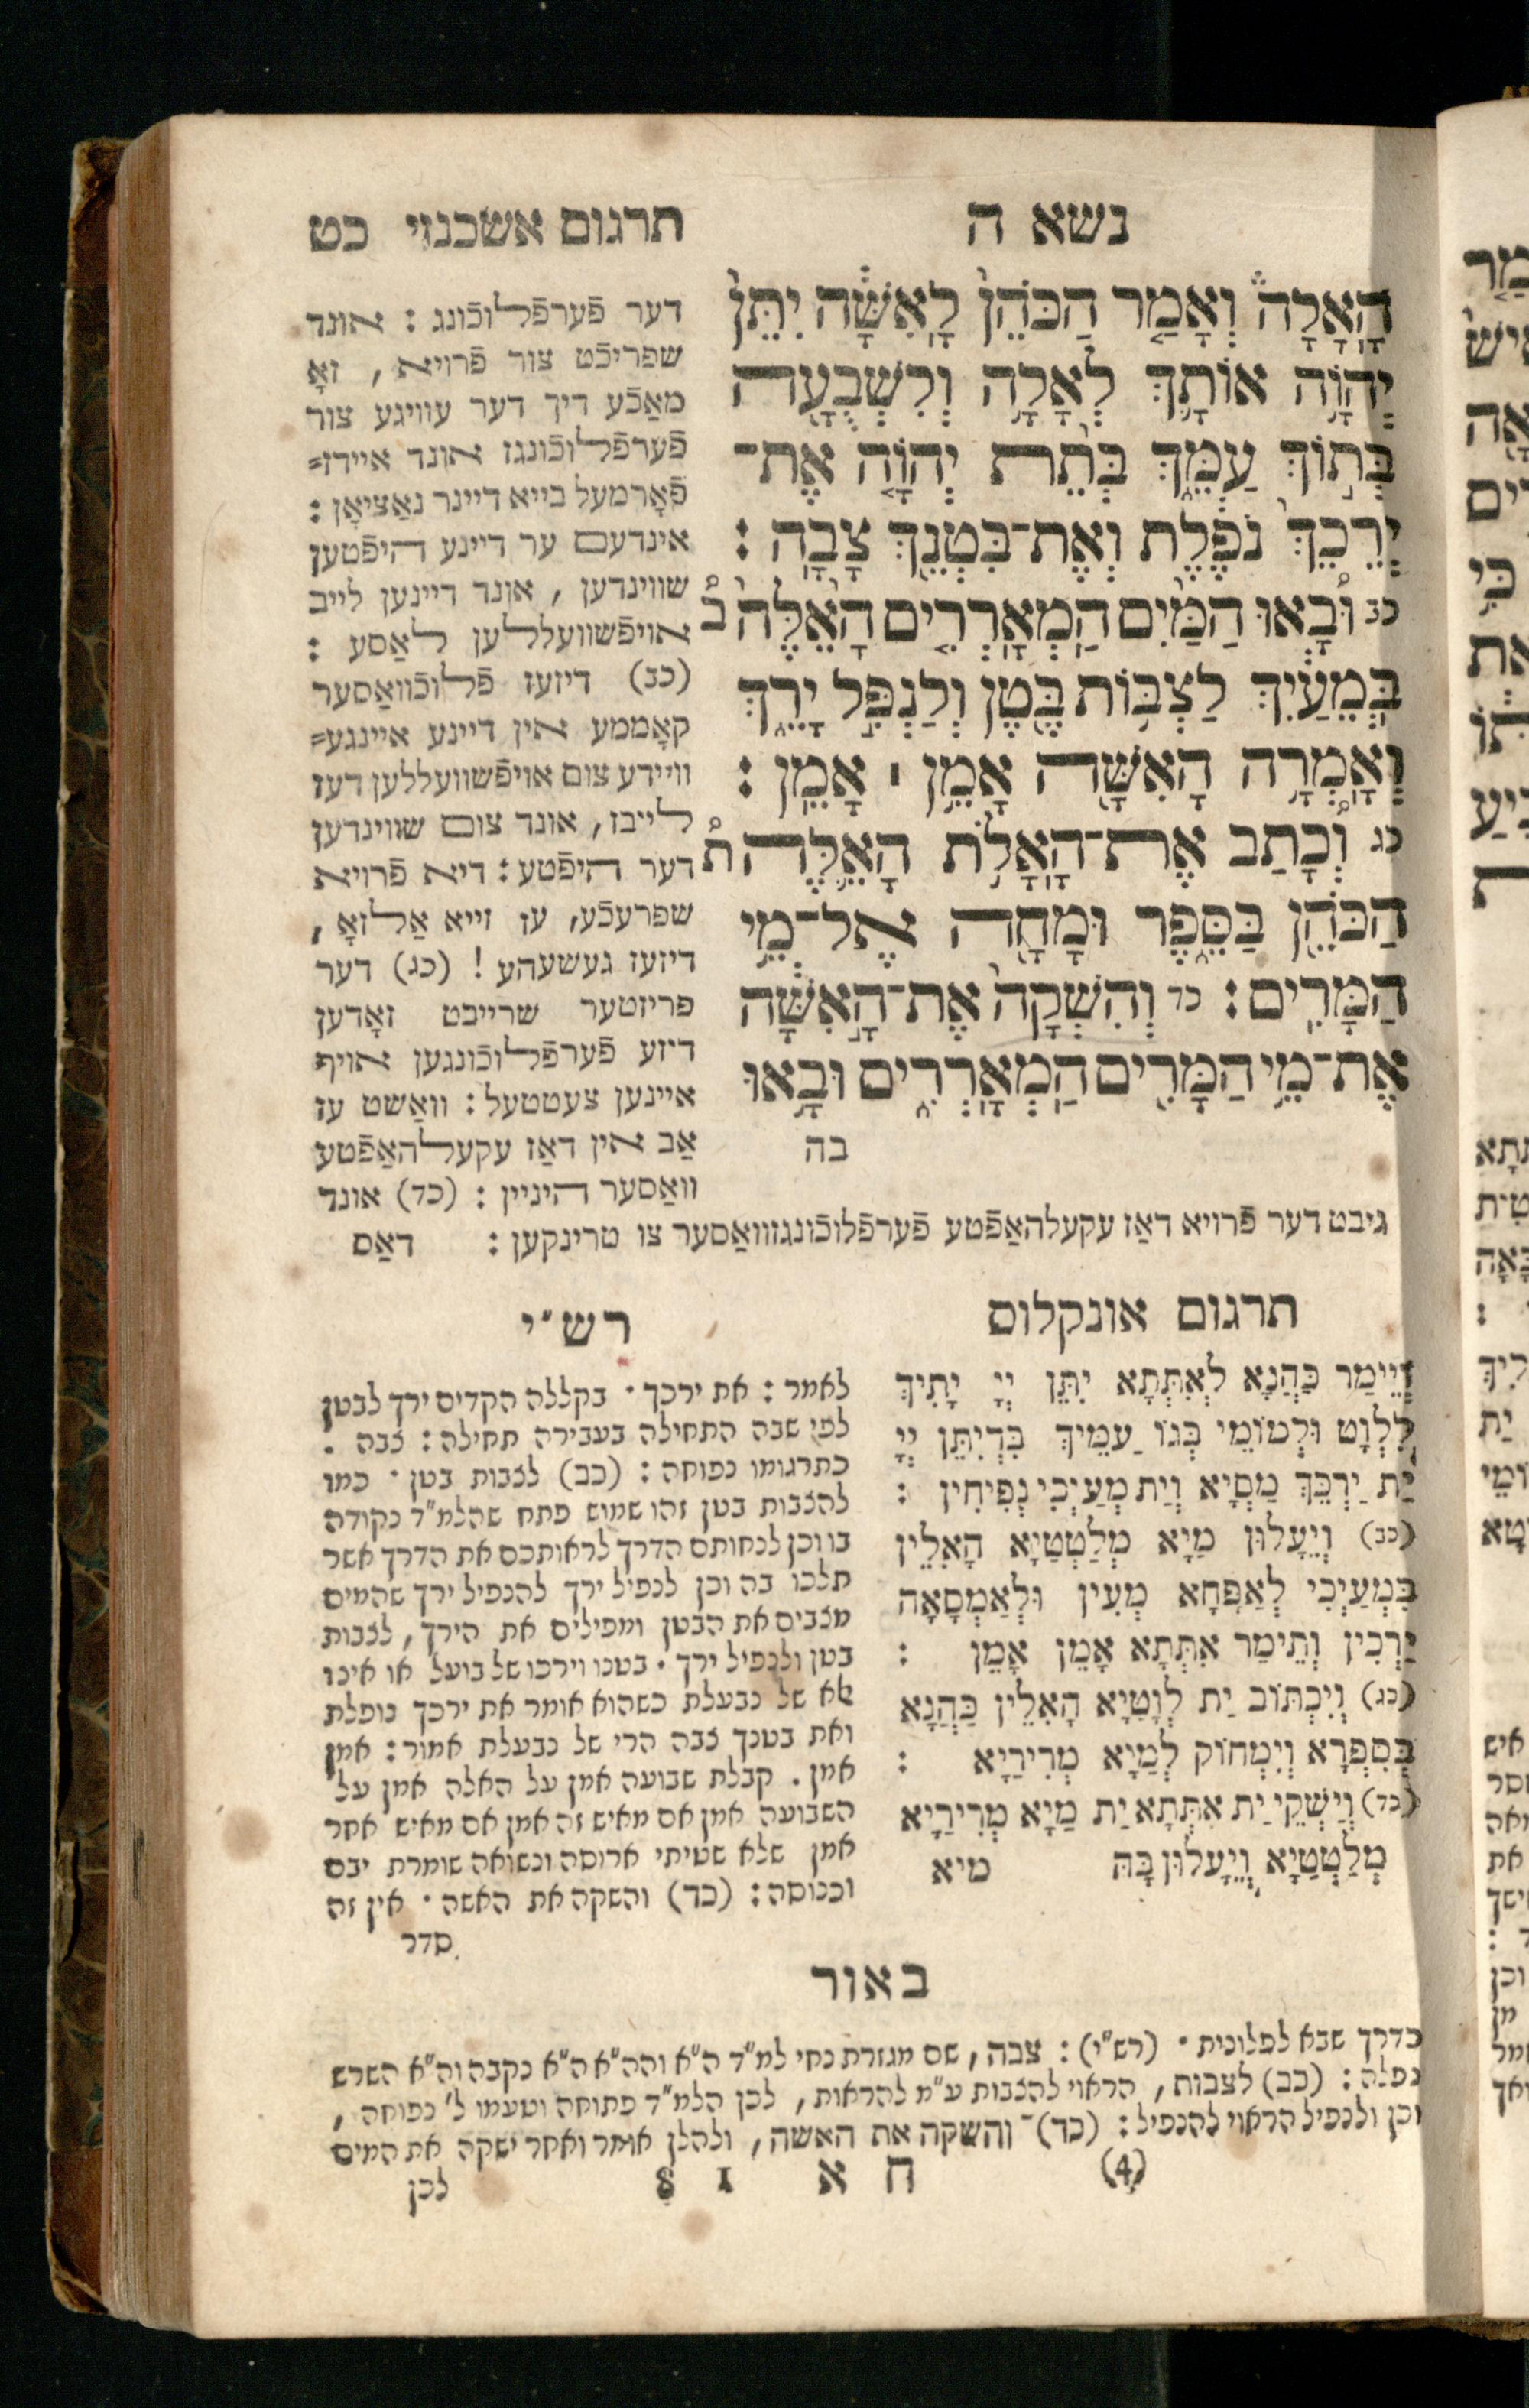 נשא ה
הָאָלָה֒ וְאָמַ֤ר הַכֹּהֵן֙ לָֽאִשָּׁ֔ה יִתֵּ֨ן
יְהוָ֥ה אוֹתָ֛ךְ לְאָלָ֥ה וְלִשְׁבֻעָ֖ה
בְּת֣וֹךְ עַמֵּ֑ךְ בְּתֵ֨ת יְהוָ֤ה אֶת־
יְרֵכֵךְ֙ נֹפֶ֔לֶת וְאֶת־בִּטְנֵ֖ךְ צָבָֽה׃
כב וּ֠בָאוּ הַמַּ֨יִם הַמְאָֽרְרִ֤ים הָאֵ֙לֶּה֙
בְּֽמֵעַ֔יִךְ לַצְבּ֥וֹת בֶּ֖טֶן וְלַנְפִּ֣ל יָרֵ֑ךְ
וְאָמְרָ֥ה הָאִשָּׁ֖ה אָמֵ֥ן ׀ אָמֵֽן׃
כג וְ֠כָתַב אֶת־הָאָלֹ֥ת הָאֵ֛לֶּה
הַכֹּהֵ֖ן בַּסֵּ֑פֶר וּמָחָ֖ה אֶל־מֵ֥י
הַמָּרִֽים׃ כד וְהִשְׁקָה֙ אֶת־הָ֣אִשָּׁ֔ה
אֶת־מֵ֥י הַמָּרִ֖ים הַמְאָֽרְרִ֑ים וּבָ֥אוּ
בה
תרגום אשכנזי כט
דער פֿערפֿלוכֿונג : אונד
שפריכֿט צור פֿרויא , זאָ
מאַכֿע דיך דער עוויגע צור
פֿערפֿלוכֿונגז אונד איידז=
פֿאָרמעל בייא דיינר נאַציאָן :
אינדעם ער דיינע היפֿטען
שווינדען , אונד דיינען לייב
אויפֿשוועללען לאַסע :
(כב) דיזעז פֿלוכֿוואַסער
קאָממע אין דיינע איינגע=
וויידע צום אויפֿשוועללען דעז
לייבז, אונד צום שווינדען
דער היפֿטע : דיא פֿרויא
שפרעכֿע, עז זייא אַלזאָ ,
דיזעז געשעהע ! (כג) דער
פריזטער שרייבט זאָדען
דיזע פֿערפֿלוכֿונגען אויף
איינען צעטטעל : וואַשט עז
אַב אין דאַז עקעלהאַפֿטע
וואַסער היניין : (כד) אונד
גיבט דער פֿרויא דאַז עקעלהאַפֿטע פֿערפֿלוכֿונגזוואַסער צו טרינקען : דאַס
תרגום אונקלוס
וְיֵימַר כַּהֲנָא לְאִתְּתָא יִתֵּן יְיָ יָתִיךְ
לִלְוָט וּלְמוֹמֵי בְּגוֹ עַמֵּיךְ בִּדְיִתֵּן יְיָ
יַת יַרְכֵּךְ מַסְיָא וְיַת מְעַיְכִי נְפִיחִין :
(כב) וְיֵעָלוּן מַיָּא מְלַטְטַיָּא הָאִלֵּין
בִּמְעַיְכִי לְאַפָּחָא מְעִין וּלְאַמְסָאָה
יַרְכִין וְתֵימַר אִתְּתָא אָמֵן אָמֵן :
(כג) וְיִכְתּוֹב יַת לְוָטַיָּא הָאִלֵּין כַּהֲנָא
בְּסִפְרָא וְיִמְחוֹק לְמַיָּא מְרִירַיָּא :
(כד) וְיַשְׁקֵי יַת אִתְּתָא יַת מַיָּא מְרִירַיָּא
מְלַטְטַיָּא וְיֵעָלוּן בָּהּ מיא
רש״י
לאמר : את ירכך ׳ בקללה הקדים ירך לבטן
לפי שבה התחילה בעבירה תחילה : צבה .
כתרגומו נפוחה : (כב) לצבות בטן ׳ כמו
להצבות בטן זהו שמוש פתח שהלמ״ד נקודה
בו וכן לנחותם הדרך לראותכם את הדרך אשר
תלכו בה וכן לנפיל ירך להנפיל ירך שהמים
מצבים את הבטן ומפילים את הירך , לצבות
בטן ולנפיל ירך . בטנו וירכו של בועל או אינו
אלא של נבעלת כשהוא אומר את ירכך נופלת
ואת בטנך צבה הרי של נבעלת אמור : אמן
אמן . קבלת שבועה אמן על האלה אמן על
השבועה אמן אם מאיש זה אמן אם מאיש אחר
אמן שלא שטיתי ארוסה ונשואה שומרת יבם
וכנוסה : (כד) והשקה את האשה ׳ אין זה
סדר
באור
כדרך שבא לפלונית ׳ (רש״י) : צבה , שם מגזרת נחי למ״ד ה״א והה״א ה״א נקבה וה״א השרש
נפלה : (כב) לצבות , הראוי להצבות ע״מ להראות , לכן הלמ״ד פתוחה וטעמו ל׳ נפוחה ,
וכן ולנפיל הראוי להנפיל : (כד) והשקה את האשה , ולהלן אומר ואחר ישקה את המים
(4) ח א 1 8 לכן